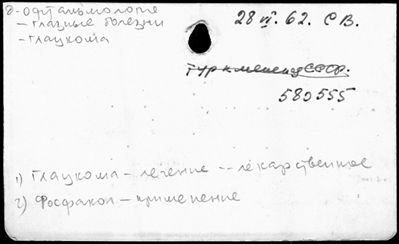 8-офтальмология
- глазные болезни
- глаукома
28 VI. 62. СВ.
Туркменск СССР.
580555
1) Глаукома - лечение -- лекарственное
2) Фосфакол - применение